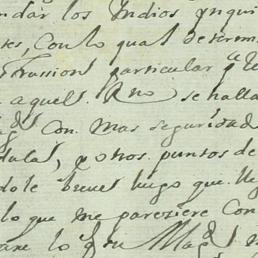 ndar los Indios ynqui
es, Con lo qual determi
trussion particular q̃ le
aquel. Año se halla
Con. Mas seguridad
dula, y otros puntos de
dole breve luego que lle
lo que me pareziere Con
lo q̃ su Mag.d